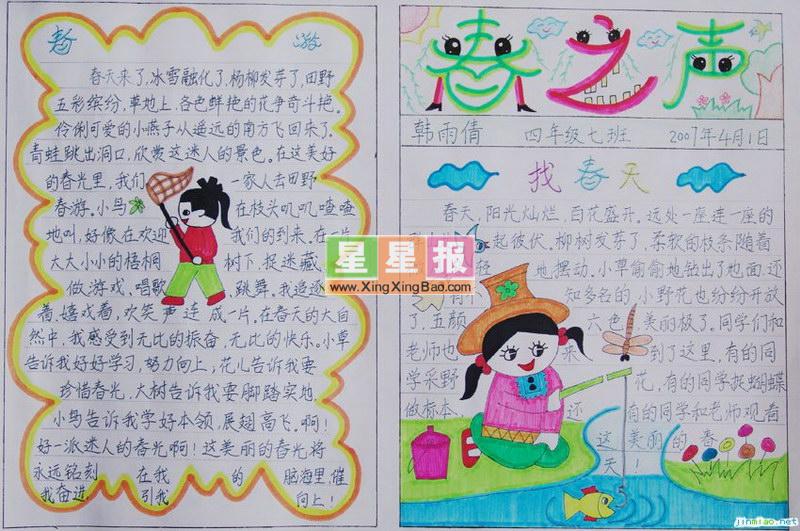 春 游
春天来了,冰雪融化了,杨柳发芽了,田野
五彩缤纷,草地上,各色鲜艳的花争奇斗艳。
伶俐可爱的小燕子从遥远的南方飞回来了。
青蛙跳出洞口,欣赏这迷人的景色。在这美好
的春光里,我们 一家人去田野
春游。小鸟 在枝头叽叽喳喳
地叫,好像在欢迎 我们的到来,在一片
大大小小的梧桐 树下,捉迷藏
做游戏,唱歌 跳舞。我追逐
着,嬉戏着,欢笑声连成一片。在春天的大自
然中,我感受到无比的振奋,无比的快乐。小草
告诉我好好学习,努力向上,花儿告诉我要
珍惜春光,大树告诉我要脚踏实地。
小鸟告诉我学好本领,展翅高飞。啊!
好一派迷人的春光啊!这美丽的春光将
永远铭刻 在我 的 脑海里,催
我奋进, 引我 向上!
春之声
韩雨倩 四年级七班 2007年4月1日
找春天
春天,阳光灿烂,百花盛开。远处一座连一座的
起彼伏。柳树发芽了,柔软的枝条随着
轻 地摆动。小草偷偷地钻出了地面,还
有 不 知多名的小野花也纷纷开放
了,五颜 六色,美丽极了。同学们和
老师也 来 到了这里,有的同
学采野 花,有的同学捉蝴蝶
做标本, 还 有的同学和老师观看
这美丽的春
天!
星星报
www.XingXingBao.com
jinmiao.net